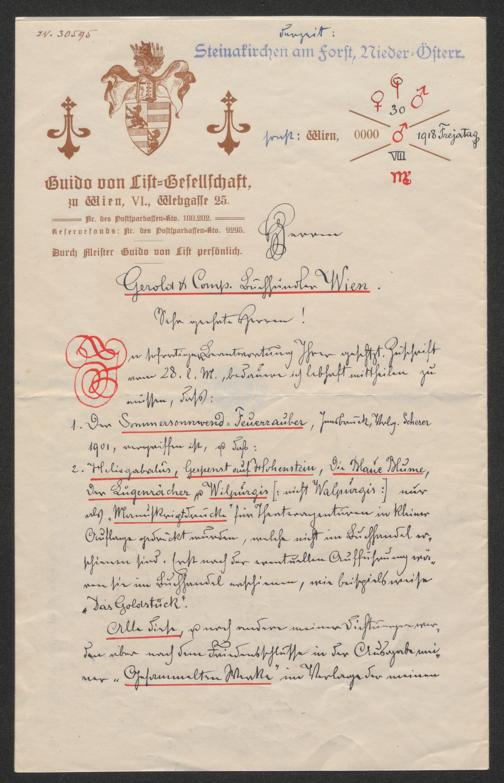 IN. 30595
Derzeit:
Steinakirchen am Forst, Nieder-Österr.
♀ ♂
30
sonst: Wien, 0000 ♂ 1918 Frejatag
VIII
♏
Guido von List-Gesellschaft,
zu Wien, VI., Webgasse 25.
Nr. des Postsparkassen-Kto. 100.202.
Reservefonds: Nr. des Postsparkassen-Kto. 2298.
Durch Meister Guido von List persönlich.
Herren
Gerold & Comp. Buchhändler Wien.
Sehr geehrte Herren!
In sofortiger Beantwortung Ihrer geschätzt. Zuschrift
vom 28. l. M., bedaure ich lebhaft mittheilen zu
müssen, daß:
1. Der Sommersonnwend-Feuerzauber, Innsbruck, Verlg. Scherer
1901, vergriffen ist, u daß:
2. Heliogabalus, Gespenst auf Hohenstein, Die Blaue Blume,
Der Lügenrächer, u Wilpurgis [: nicht Walpurgis :] nur
als „Manuskriptdrucke“ für Theateragenturen in kleiner
Auflage gedruckt wurden, welche nicht im Buchhandel er-
schienen sind. Erst nach der eventuellen Aufführung wä-
ren sie im Buchhandel erschienen, wie beispielsweise
„Das Goldstück“.
Alle diese, u noch andere meiner Dichtungen wer-
den aber nach dem Friedensschlusse in der Ausgabe mei-
ner „Gesammelten Werke“ im Verlage der meinen